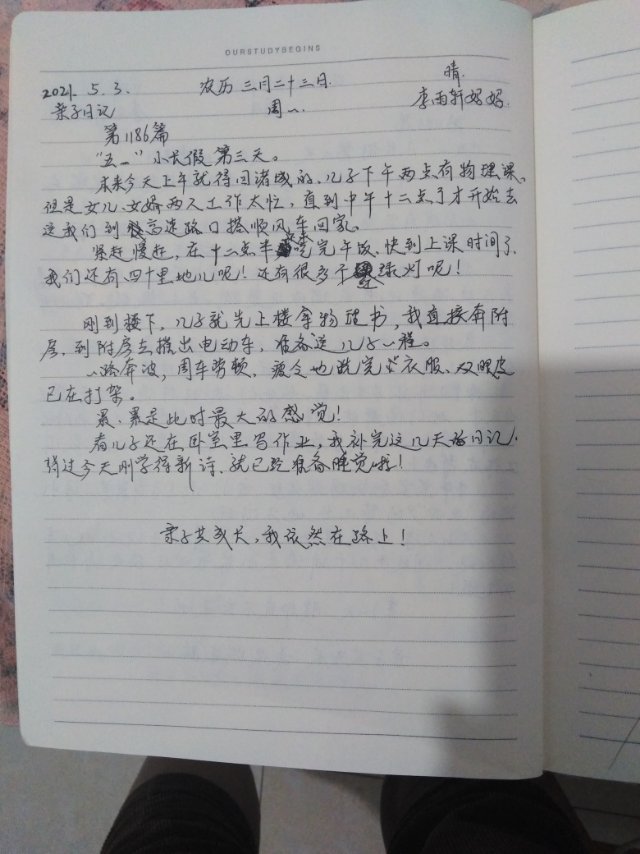 OURSTUDYBEGINS
2021. 5. 3. 农历 三月二十三日. 晴.
亲子日记 周一. 李雨轩妈妈.
第1186篇
“五一”小长假 第三天。
本来今天上午就得回诸城的、儿子下午两点有物理课.
但是女儿、女婿两人工作太忙，直到中午十二点了才开始去
送我们到高速路口搭顺风车回家。
紧赶慢赶，在十二点半吃完午饭、快到上课时间了.
我们还有四十里地儿呢！还有很多绿灯呢！
刚到楼下，儿子就先上楼拿物理书，我直接奔附
房.到附房去推出电动车，准备送儿子一程。
一路奔波，周车劳顿.疲令也洗完衣服.双眼皮
已在打架。
累、累是此时最大的感觉！
看儿子还在卧室里写作业，我补完这几天的日记.
错过今天刚学得新诗.就已经准备睡觉啦！
亲子共成长，我依然在路上！